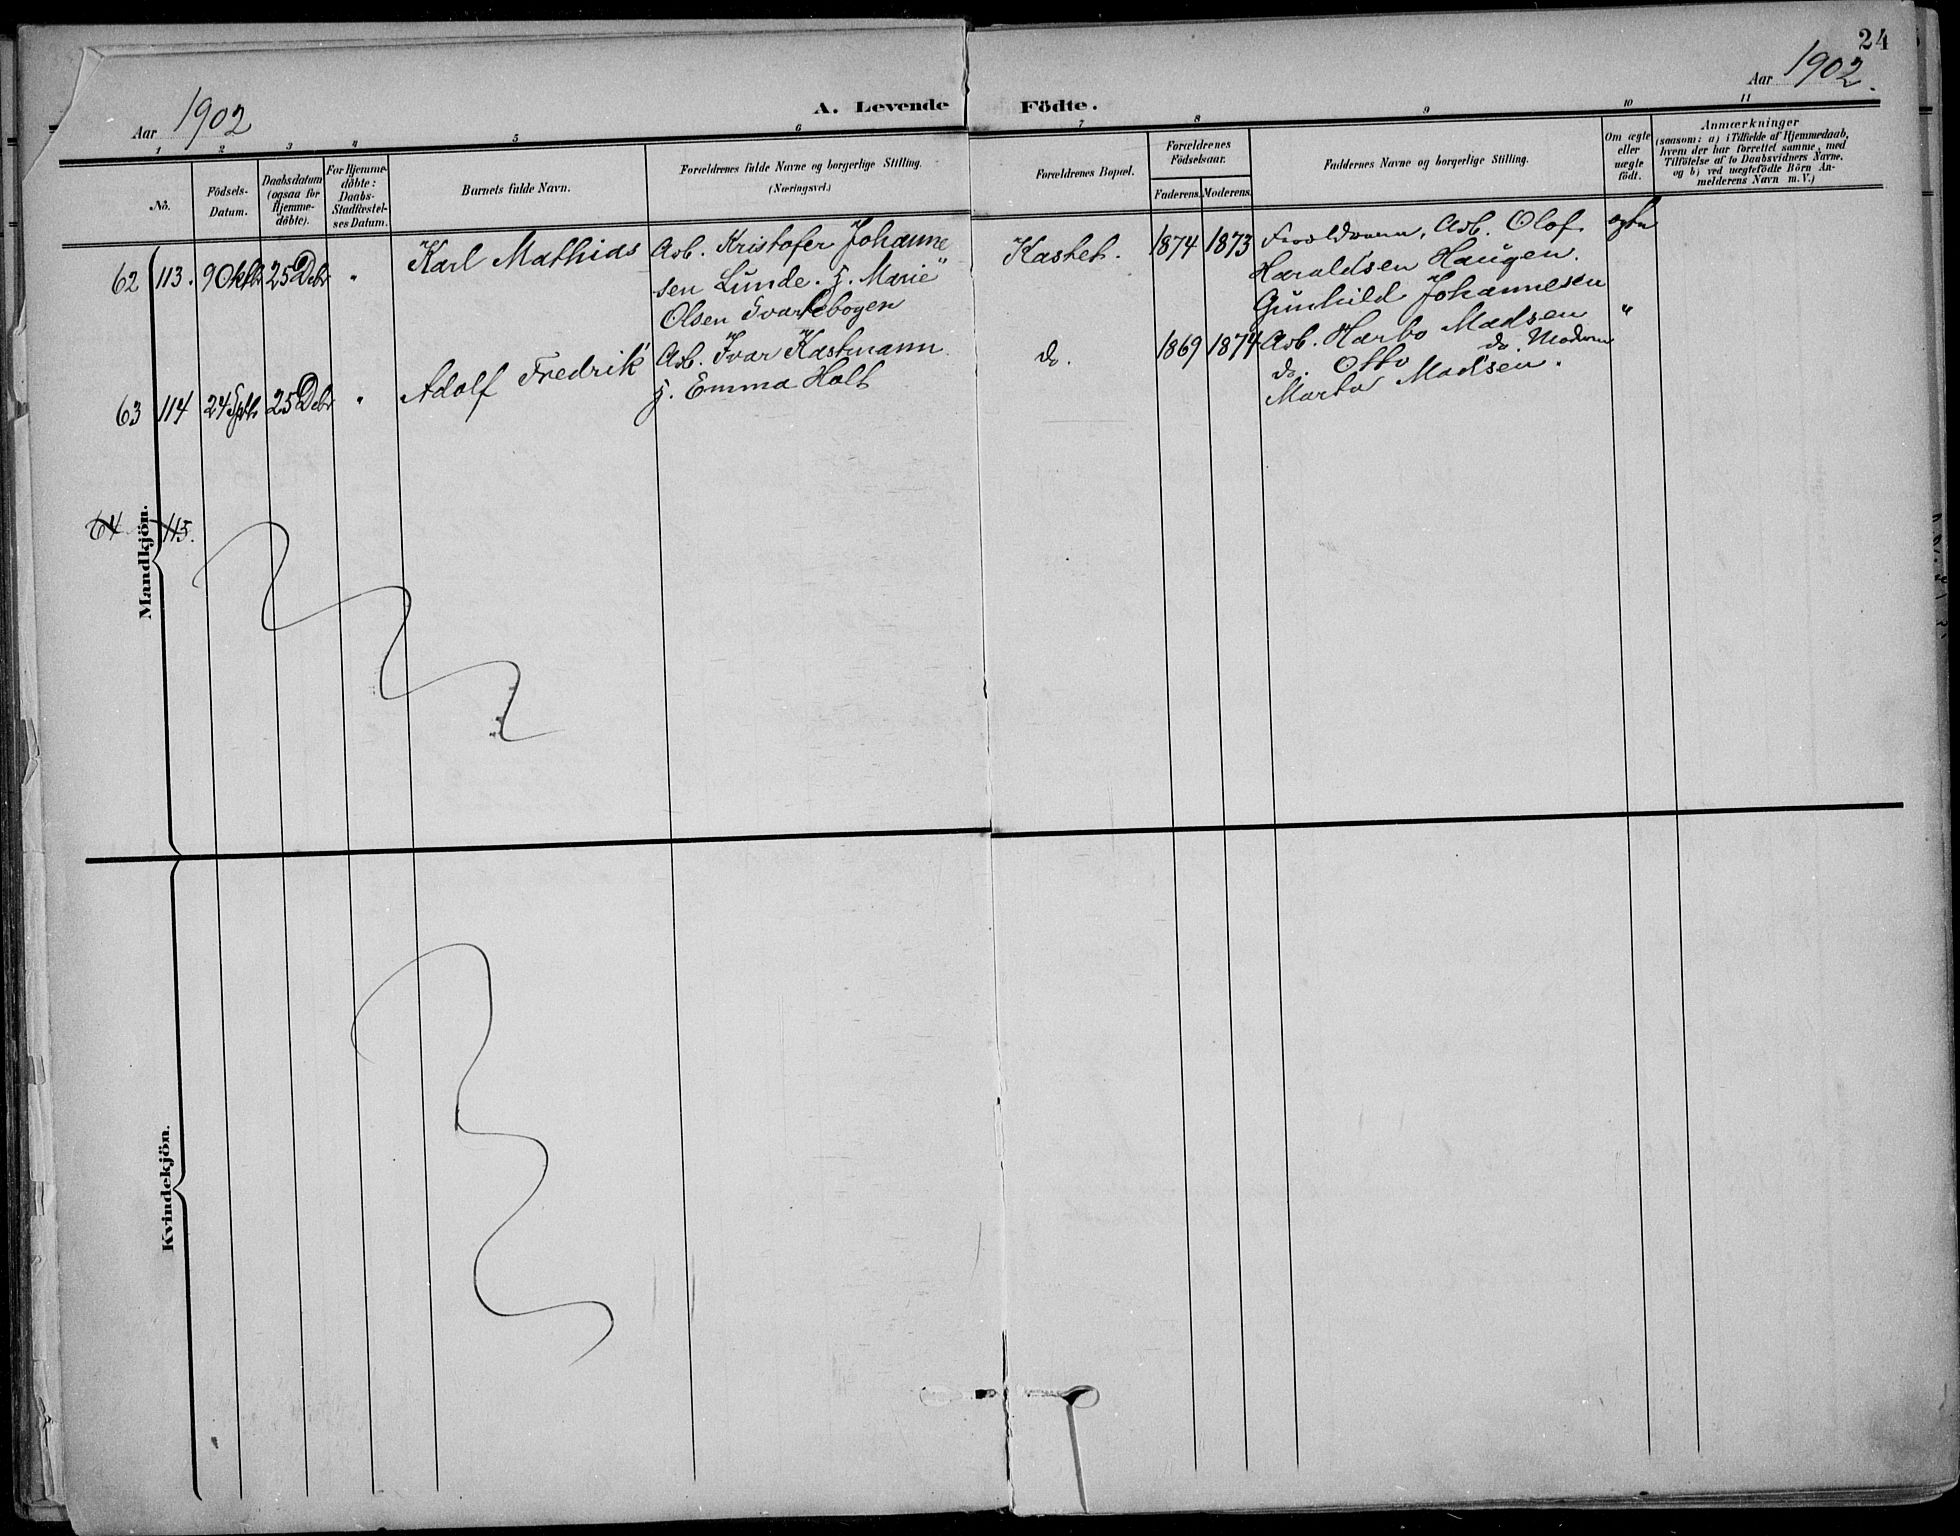 24
Aar 1902
A. Levende Födte.
Aar 1902.
1 2 3 4 5 6 7 8 9 10 11
No.
Födsels-
Datum.
Daabsdatum
(ogsaa for
Hjemme-
döbte).
For Hjemme-
döbte:
Daabs-
Stadfæstel-
ses Datum.
Barnets fulde Navn.
Forældrenes fulde Navne og borgerlige Stilling.
(Næringsvei.)
Forældrenes Bopæl.
Forældrenes
Födselsaar.
Faderens. Moderens.
Faddernes Navne og borgerlige Stilling.
Om ægte
eller
uægte
födt.
Anmærkninger
(saasom: a) i Tilfælde af Hjemmedaab,
hvem der har forrettet samme, med
Tilföielse af to Daabsvidners Navne,
og b) ved uægtefödte Börn An-
melderens Navn m. V.)
Mandkjön.
62 113. 9 Oktbr 25 Debr " Karl Mathias
Arb. Kristofer Johanne
sen Lunde. g. Marie
Olsen Svartebogen
Kastet. 1874 1873
Forældrene, Arb. Olof
Haraldsen Haugen.
Gunhild Johannesen
ægte
63 114 24 Sptb 25 Debr " Adolf Fredrik
Arb. Ivar Kastmann
g. Emma Holt
do. 1869 1874
Arb. Harbo Madsen
do. Otto do Moderen
Marta Madsen.
"
64 115.
Kvindekjön.